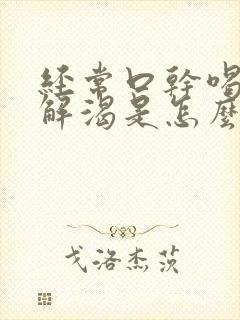 經常口幹喝
解渴是怎麼
戈洛杰茨